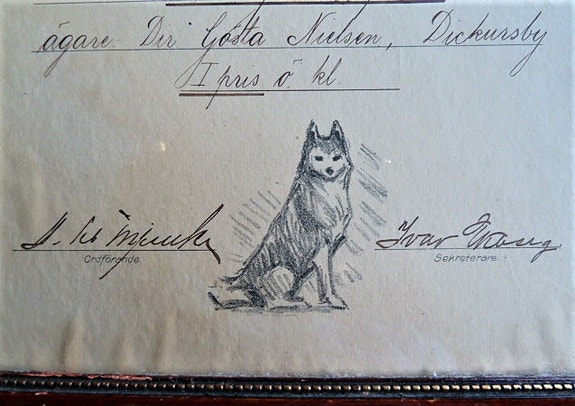 ägare. Dir. Gösta Nielsen, Dickursby
I pris ö. kl.
Ivar
Ordförande. Sekreterare.